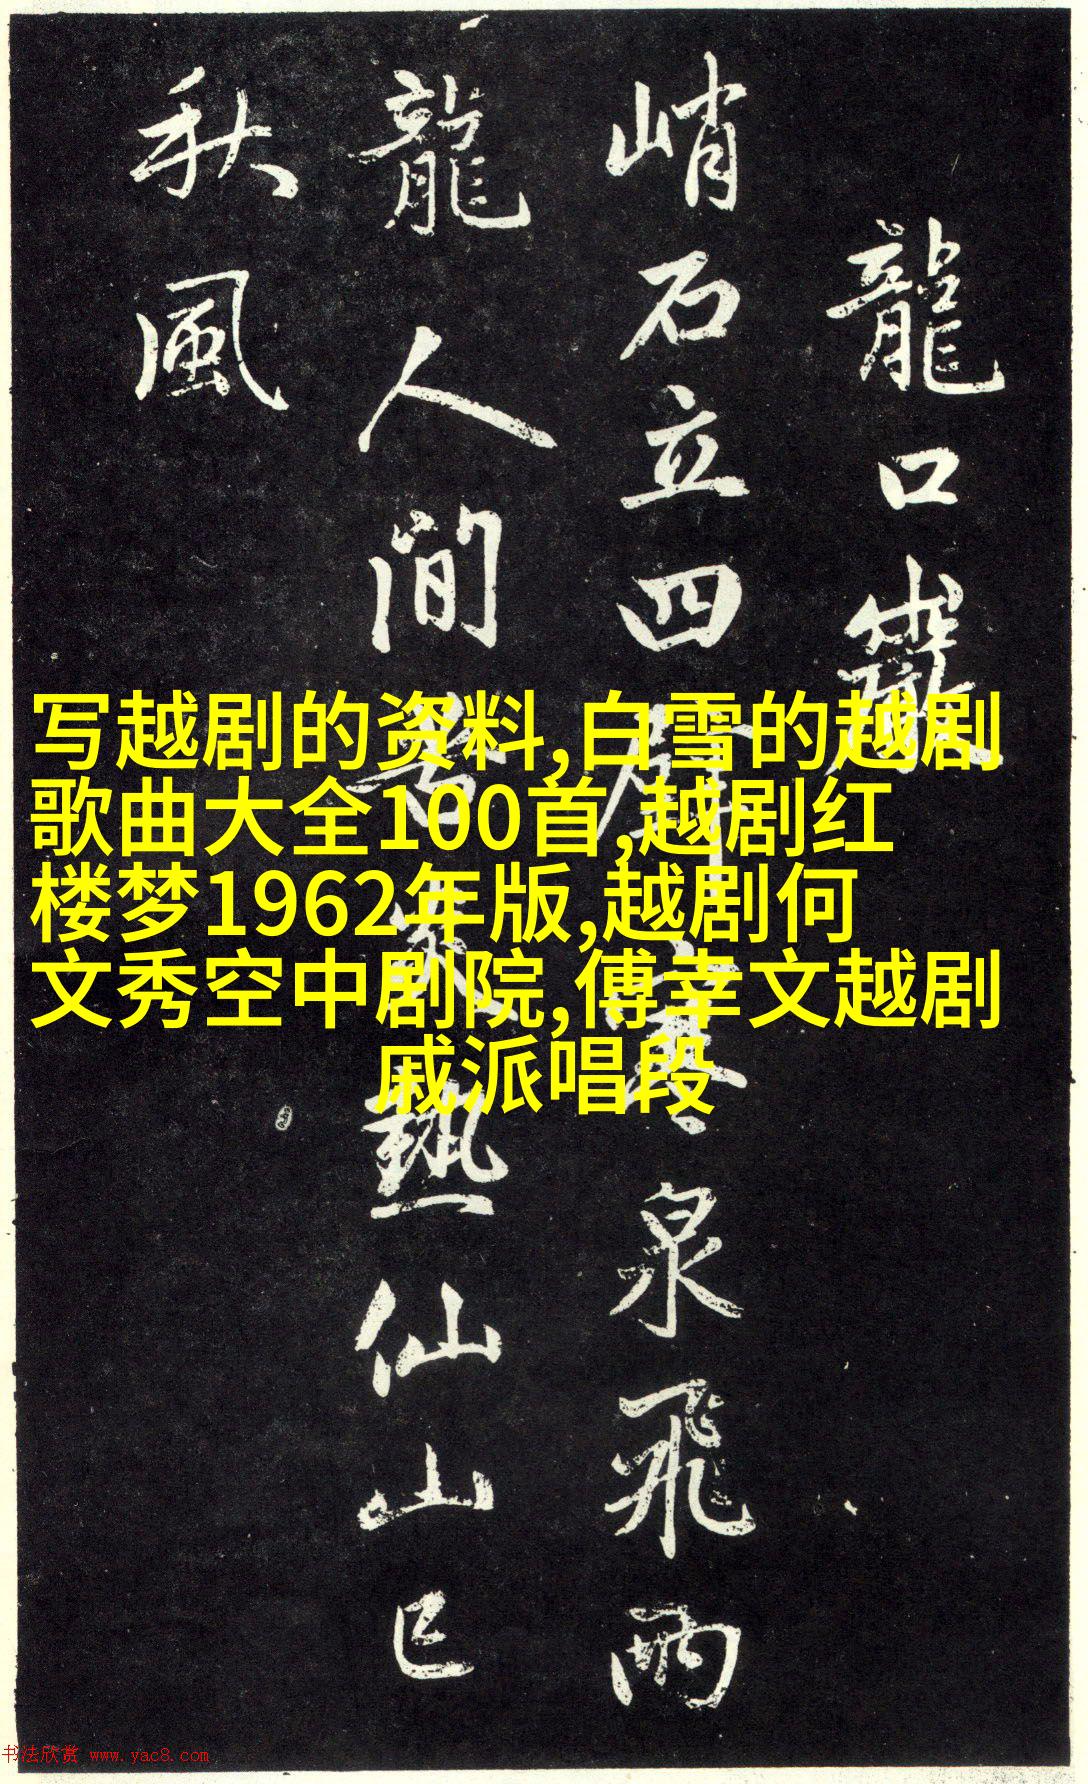 龍口
峭石立四壁寒泉飛兩
龍人間苦炎熱仙山已
秋風
写越剧的资料,白雪的越剧
歌曲大全100首,越剧红
楼梦1962年版,越剧何
文秀空中剧院,傅幸文越剧
戚派唱段
书法欣赏 www.yac8.com